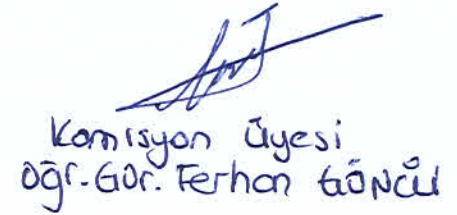 Komisyon Üyesi
Öğr.Gör. Ferhan GÖNCÜ